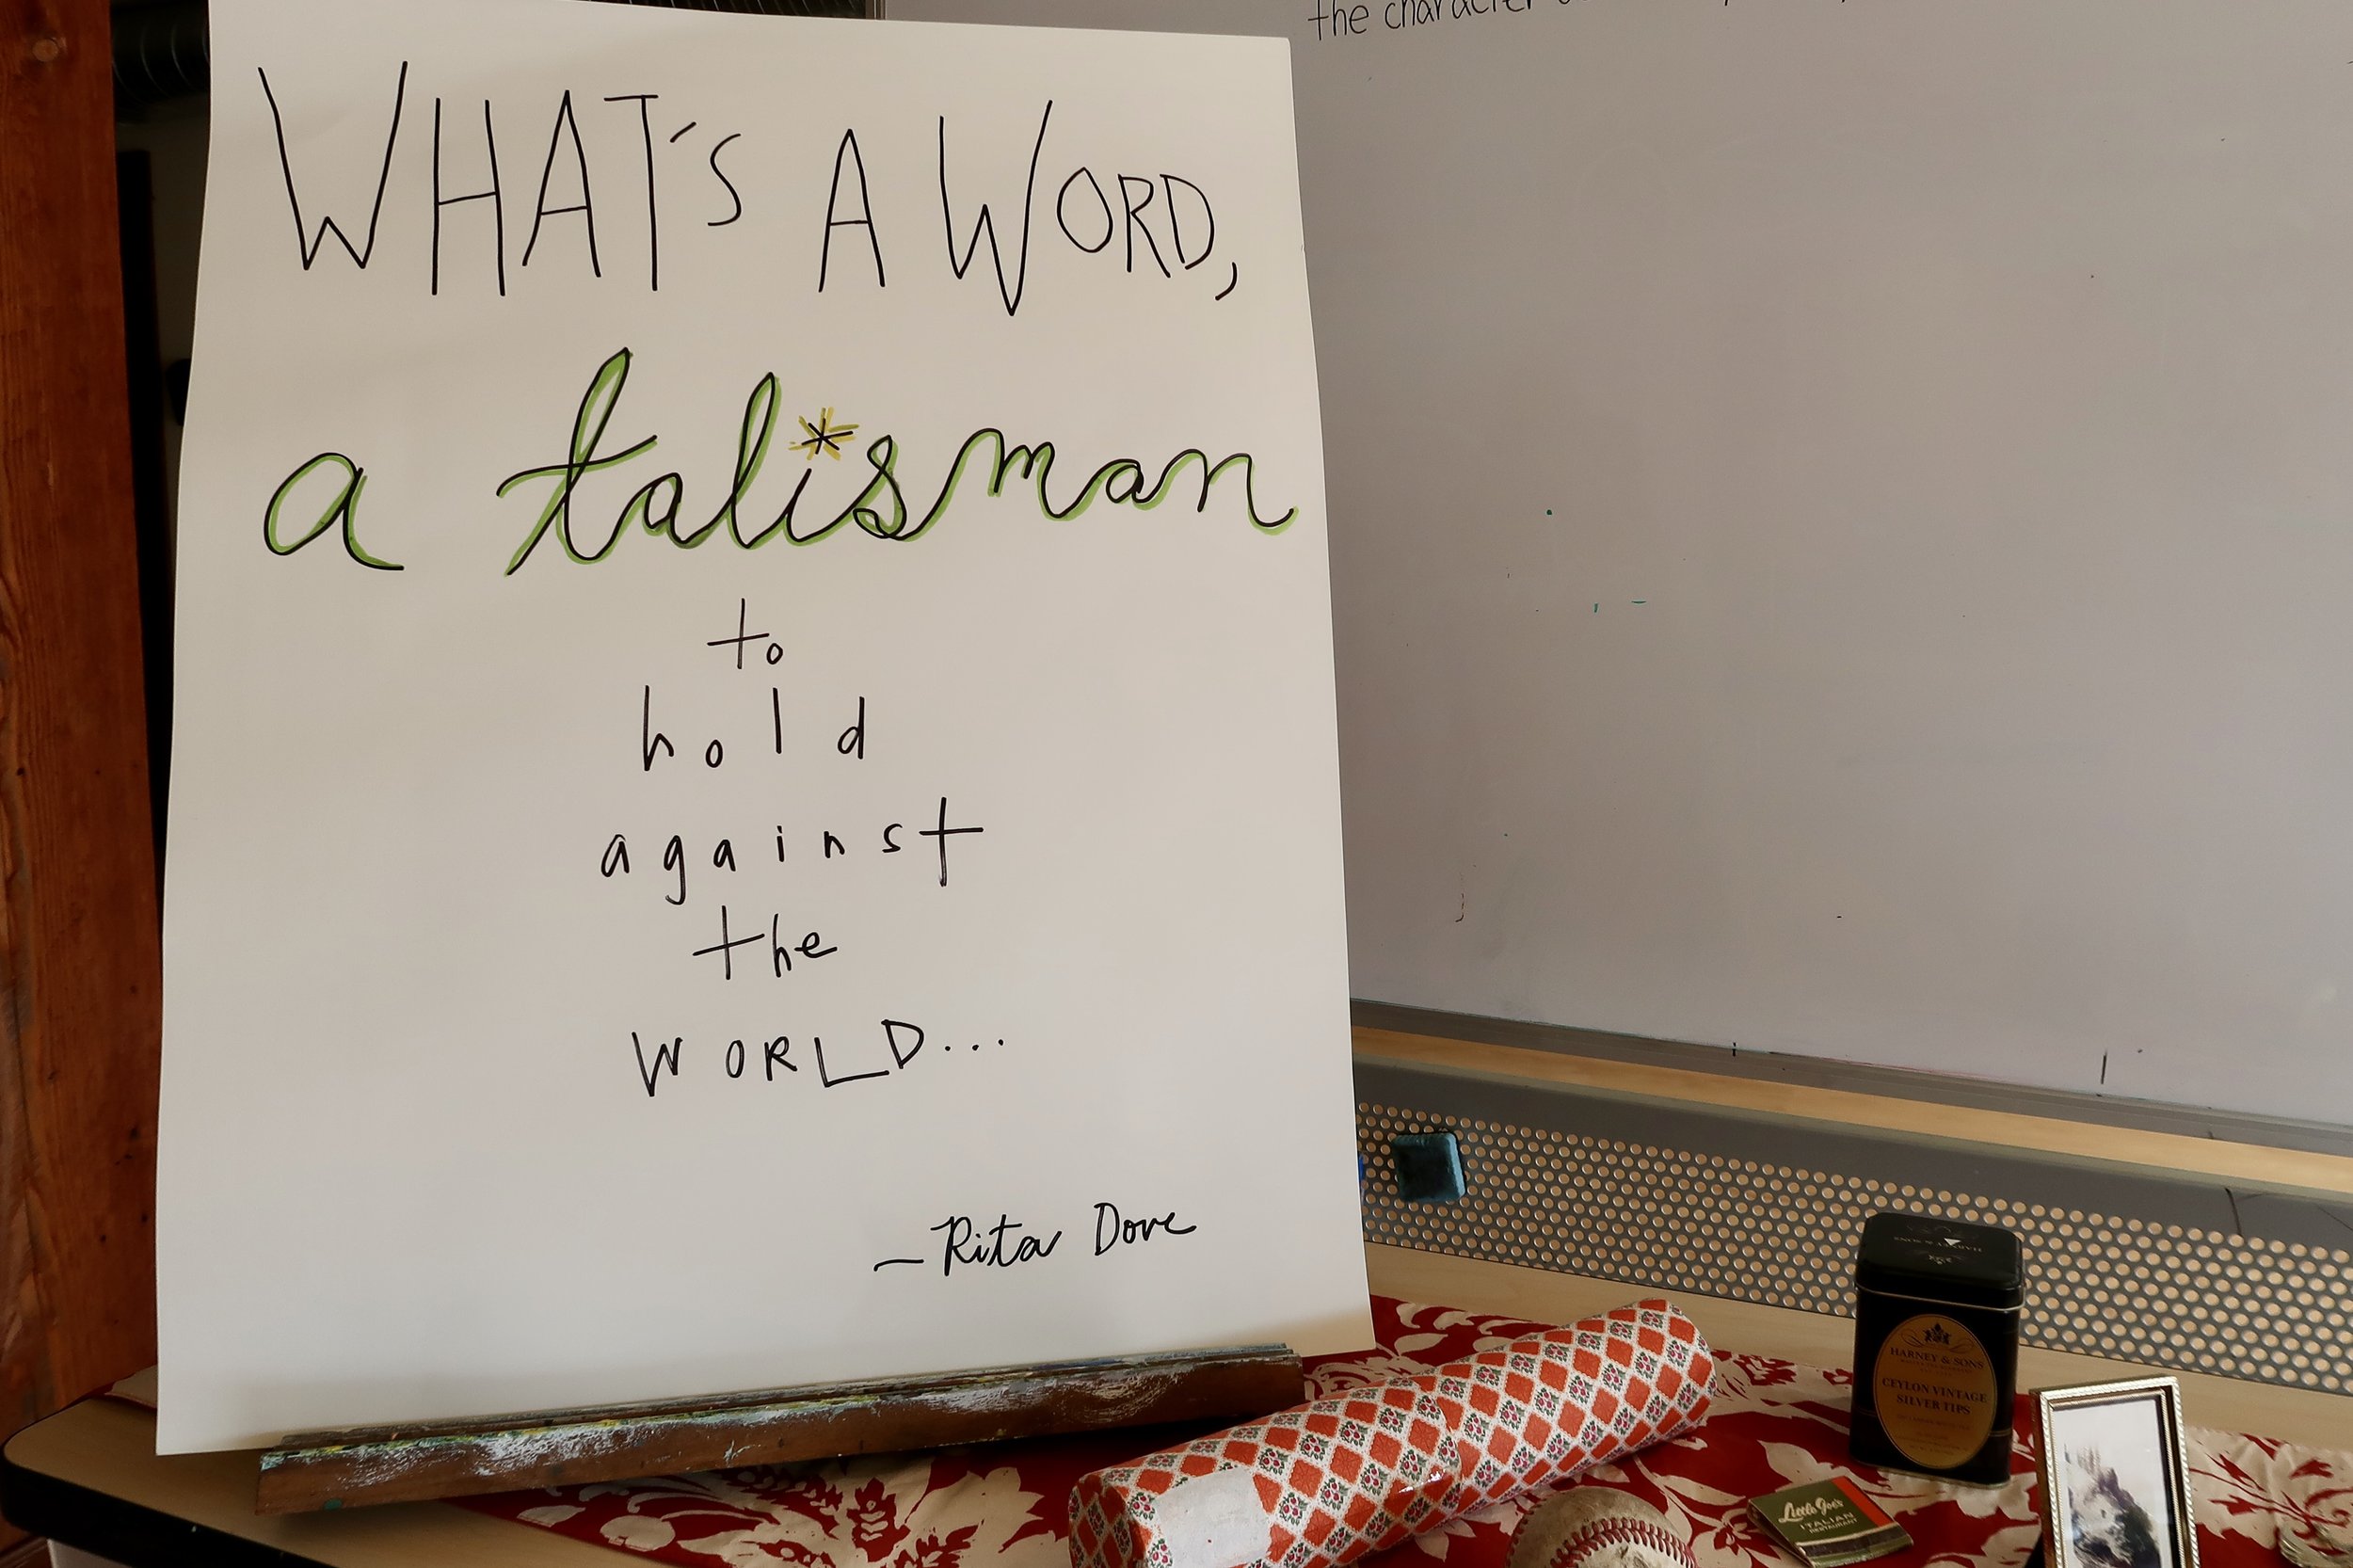 the character
WHAT'S A WORD,
a talisman
to
hold
against
the
WORLD...
—Rita Dove
HARNEY & SONS
HARNEY & SONS
CEYLON VINTAGE
SILVER TIPS
Little Joe's
ITALIAN
RESTAURANT